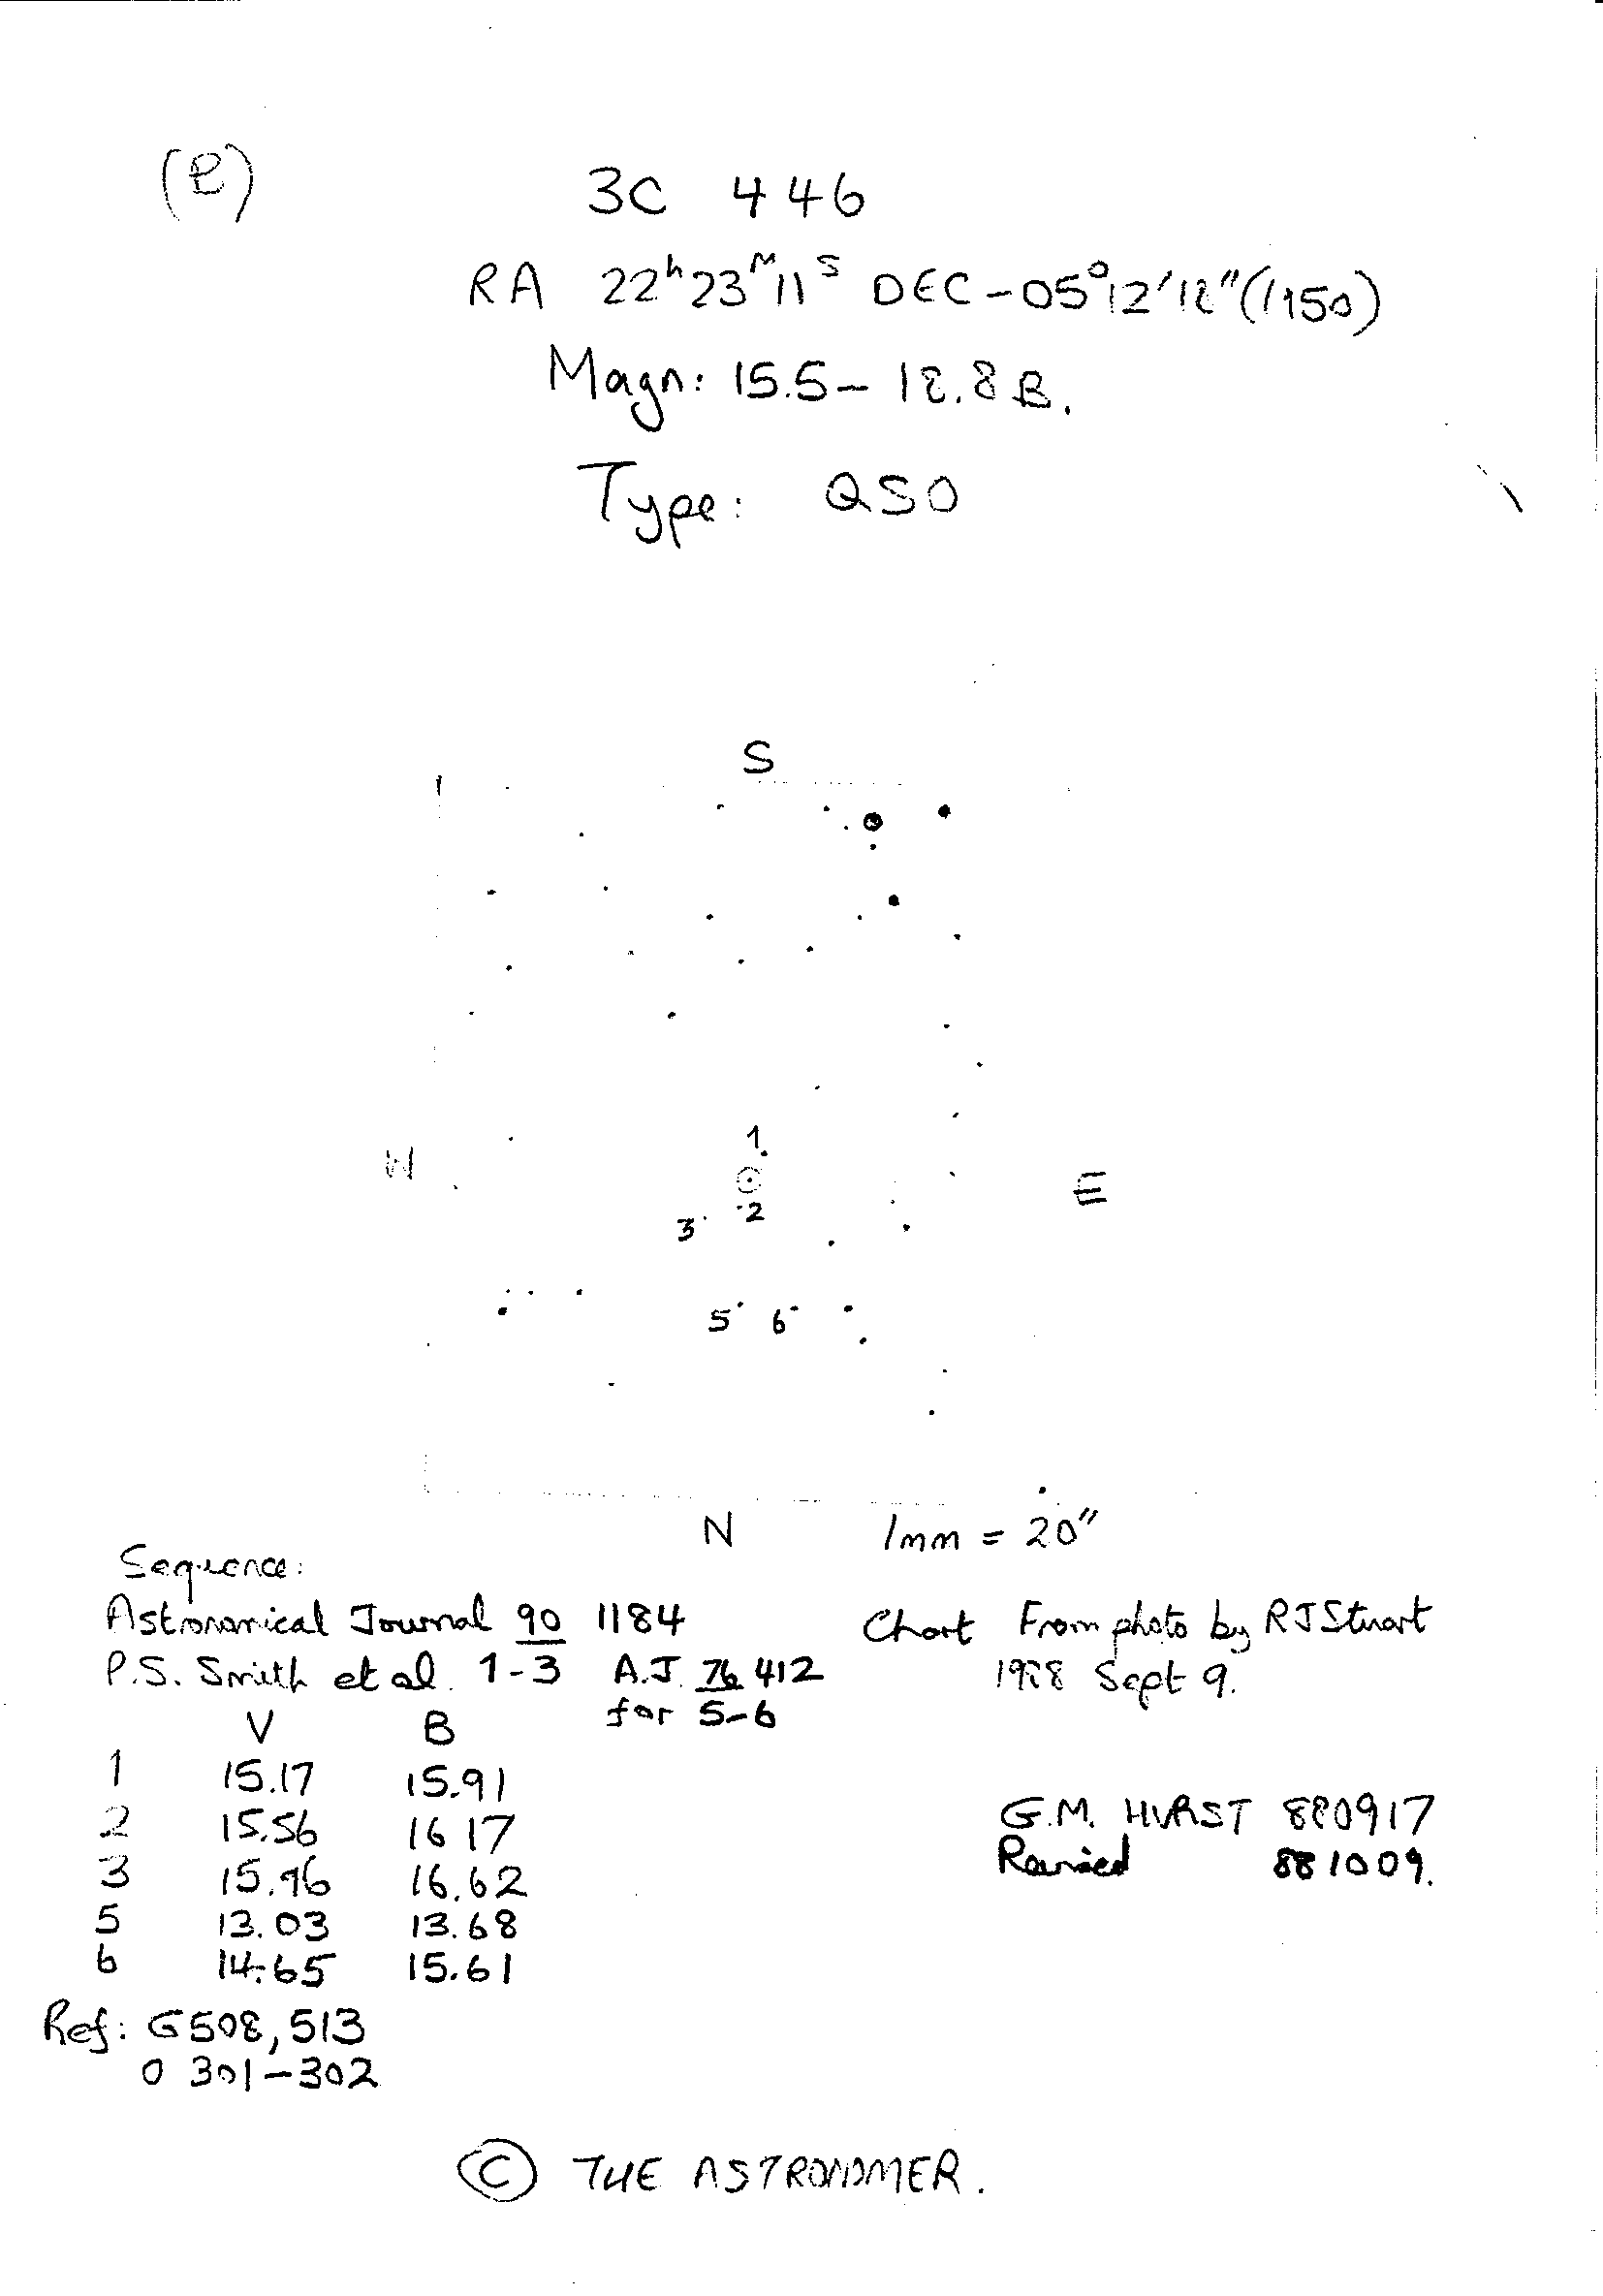 (e)
3C 446
RA 22ʰ23ᴹ11ˢ DEC -05°12'12" (1950)
Magn: 15.5 - 18.8 B.
Type: QSO
S
1
W
E
2
3
5 6
N
1mm = 20"
Sequence:
Astronomical Journal 90 1184
Chart From photo by RJ Stuart
P.S. Smith et al. 1-3 A.J. 76 412
1988 Sept 9.
for 5-6
V B
1 15.17 15.91
2 15.56 16 17
3 15.96 16.62
5 13.03 13.68
6 14.65 15.61
G.M. HURST 880917
Revised 881009.
Ref: G508, 513
0 301-302
© THE ASTRONOMER.